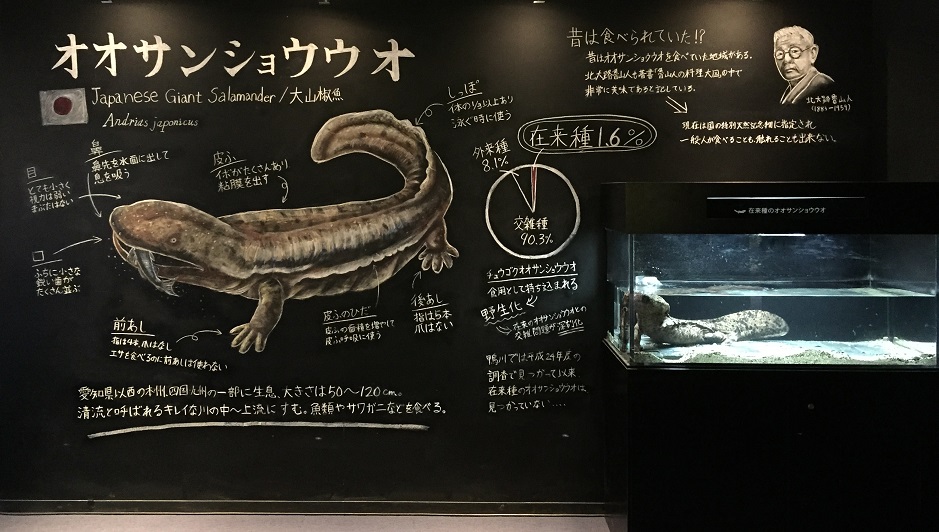 オオサンショウウオ
Japanese Giant Salamander/大山椒魚
Andrias japonicus
しっぽ
体の1/3以上あり
泳ぐ時に使う
鼻
鼻先を水面に出して
息を吸う
皮ふ
イボがたくさんあり
粘膜を出す
目
とても小さく
視力は弱い
まぶたはない
口
ふちに小さな
鋭い歯が
たくさん並ぶ
前あし
指は4本、爪はなし
エサを食べるのに前あしは使わない
皮ふのひだ
皮ふの面積を増やして
皮ふ呼吸に使う
後あし
指は5本
爪はない
愛知県以西の本州、四国、九州の一部に生息、大きさは50〜120cm。
清流と呼ばれるキレイな川の中〜上流にすむ。魚類やサワガニなどを食べる。
在来種1.6%
外来種
8.1%
交雑種
90.3%
チュウゴクオオサンショウウオ
食用として持ち込まれる
野生化
在来のオオサンショウウオとの
交雑問題が深刻化
鴨川では平成24年度の
調査で見つかって以来
在来種のオオサンショウウオは、
見つかっていない....
昔は食べられていた!?
昔はオオサンショウウオを食べていた地域がある。
北大路魯山人も著書「魯山人の料理大国」の中で
非常に美味であると記している。
北大路魯山人
(1883-1959)
現在は国の特別天然記念物に指定され
一般人が食べることも、触れることも出来ない。
在来種のオオサンショウウオ